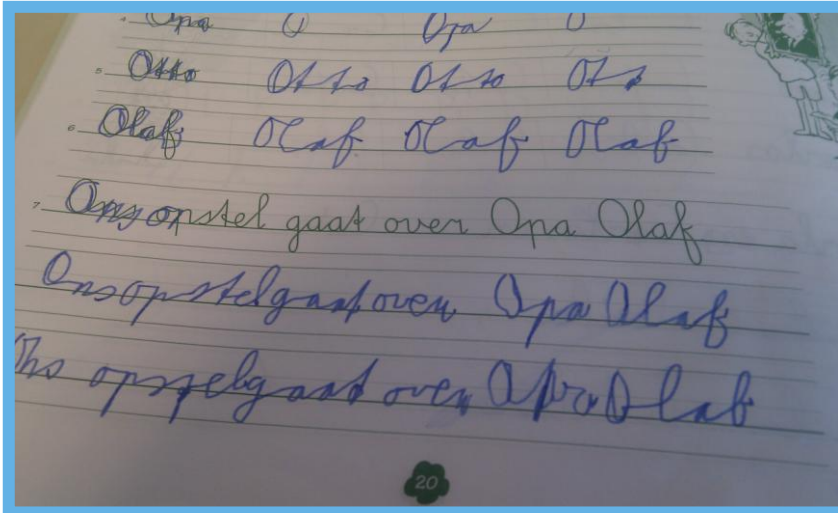 Opa O Opa O
5. Otto Otto Otto Otto
6. Olaf Olaf Olaf Olaf
7. Ons opstel gaat over Opa Olaf
Ons opstel gaat over Opa Olaf
Ons opstel gaat over Opa Olaf
20